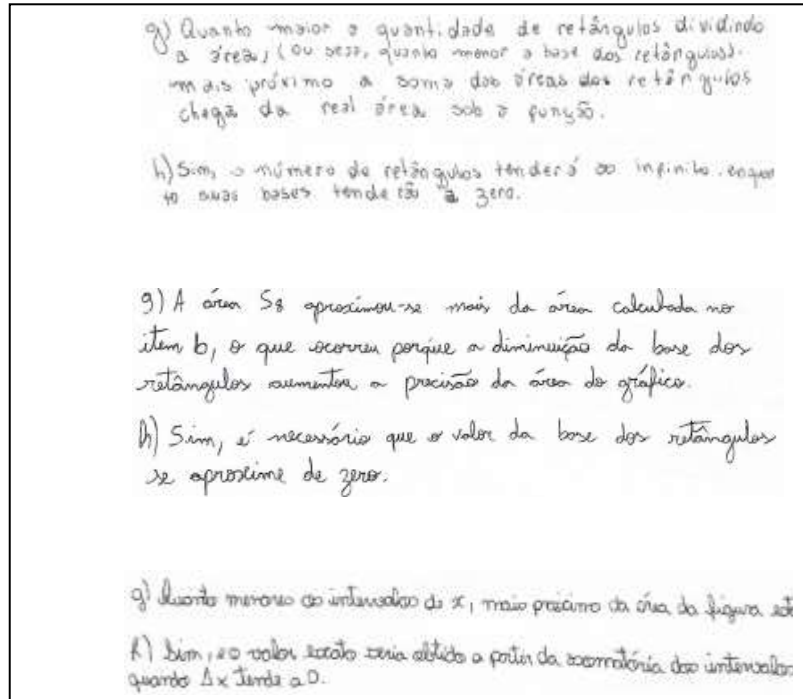 g) Quanto maior a quantidade de retângulos dividindo
a área, (ou seja, quanto menor a base dos retângulos).
mais próximo a soma das áreas dos retângulos
chega da real área sob a função.
h) Sim, o número de retângulos tenderá ao infinito. enquan
to suas bases tenderão a zero.
g) A área S8 aproximou-se mais da área calculada no
item b, o que ocorreu porque a diminuição da base dos
retângulos aumentou a precisão da área do gráfico.
h) Sim, é necessário que o valor da base dos retângulos
se aproxime de zero.
g) Quanto menores os intervalos de x, mais próximo da área da figura
h) Sim, e o valor exato seria obtido a partir da somatória dos intervalos
quando Δx tende a 0.